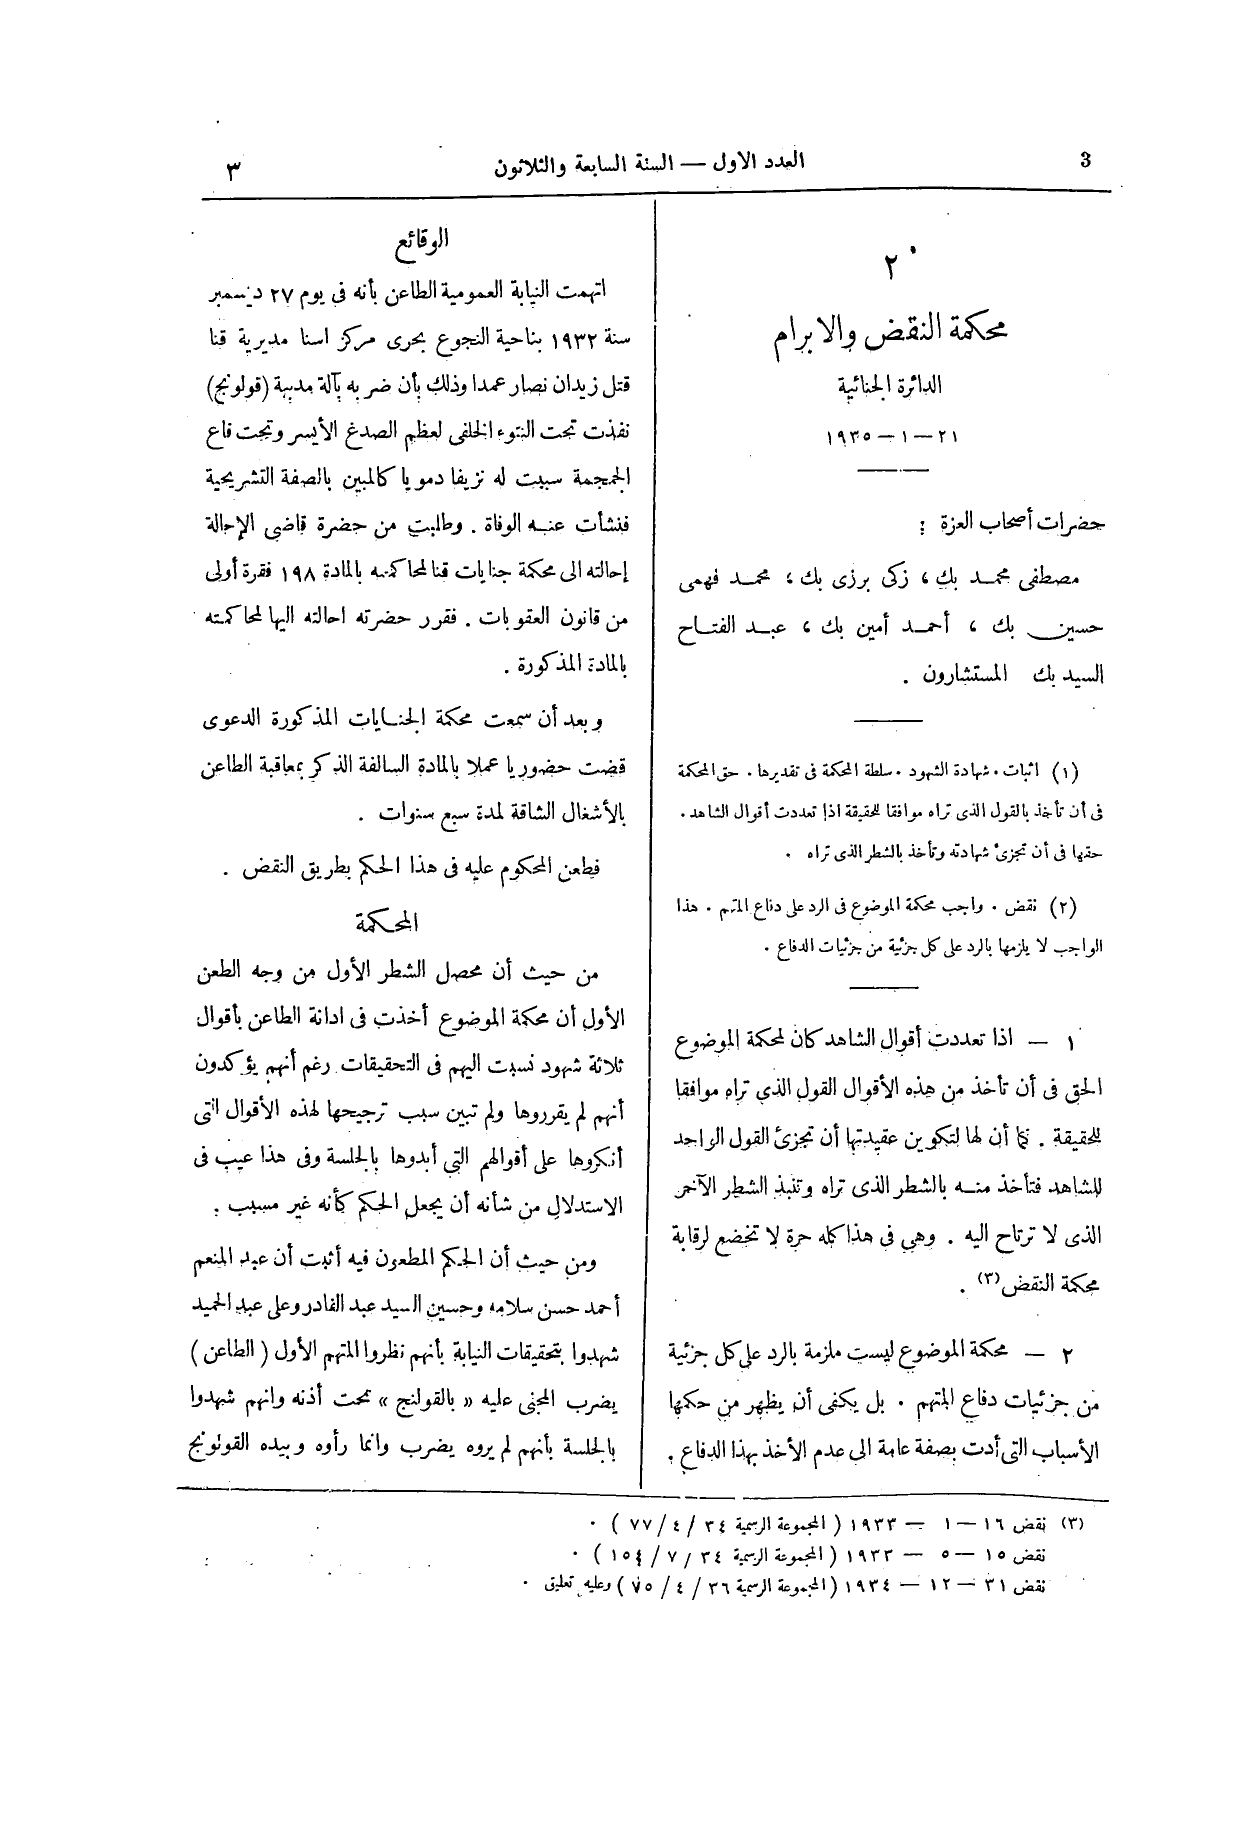 3 العدد الاول — السنة السابعة والثلاثون ٣
٢
محكمة النقض والابرام
الدائرة الجنائية
٢١ — ١ — ١٩٣٥
حضرات أصحاب العزة :
مصطفى محمد بك ، زكى برزى بك ، محمد فهمى
حسين بك ، أحمد أمين بك ، عبد الفتاح
السيد بك المستشارون .
(١) اثبات . شهادة الشهود . سلطة المحكمة فى تقديرها . حق المحكمة
فى أن تأخذ بالقول الذى تراه موافقا للحقيقة اذا تعددت أقوال الشاهد .
حقها فى أن تجزئ شهادته وتأخذ بالشطر الذى تراه .
(٢) نقض . واجب محكمة الموضوع فى الرد على دفاع المتهم . هذا
الواجب لا يلزمها بالرد على كل جزئية من جزئيات الدفاع .
١ — اذا تعددت أقوال الشاهد كان لمحكمة الموضوع
الحق فى أن تأخذ من هذه الأقوال القول الذي تراه موافقا
للحقيقة . كما أن لها لتكوين عقيدتها أن تجزئ القول الواحد
للشاهد فتأخذ منه بالشطر الذى تراه وتنبذ الشطر الآخر
الذى لا ترتاح اليه . وهي فى هذا كله حرة لا تخضع لرقابة
محكمة النقض (٣) .
٢ — محكمة الموضوع ليست ملزمة بالرد على كل جزئية
من جزئيات دفاع المتهم . بل يكفى أن يظهر من حكمها
الأسباب التى أدت بصفة عامة الى عدم الأخذ بهذا الدفاع .
الوقائع
اتهمت النيابة العمومية الطاعن بأنه فى يوم ٢٧ ديسمبر
سنة ١٩٣٢ بناحية النجوع بحرى مركز اسنا مديرية قنا
قتل زيدان نصار عمدا وذلك بأن ضربه بآلة مدببة (قولونج)
نفذت تحت النتوء الخلفى لعظم الصدغ الأيسر وتحت قاع
الجمجمة سببت له نزيفا دمويا كالمبين بالصفة التشريحية
فنشأت عنه الوفاة . وطلبت من حضرة قاضى الإحالة
إحالته الى محكمة جنايات قنا لمحاكمته بالمادة ١٩٨ فقرة أولى
من قانون العقوبات . فقرر حضرته احالته اليها لمحاكمته
بالمادة المذكورة .
وبعد أن سمعت محكمة الجنايات المذكورة الدعوى
قضت حضوريا عملا بالمادة السالفة الذكر بمعاقبة الطاعن
بالأشغال الشاقة لمدة سبع سنوات .
فطعن المحكوم عليه فى هذا الحكم بطريق النقض .
المحكمة
من حيث أن محصل الشطر الأول من وجه الطعن
الأول أن محكمة الموضوع أخذت فى ادانة الطاعن بأقوال
ثلاثة شهود نسبت اليهم فى التحقيقات رغم أنهم يؤكدون
أنهم لم يقرروها ولم تبين سبب ترجيحها لهذه الأقوال التى
أنكروها على أقوالهم التي أبدوها بالجلسة وفى هذا عيب فى
الاستدلال من شأنه أن يجعل الحكم كأنه غير مسبب .
ومن حيث أن الحكم المطعون فيه أثبت أن عبد المنعم
أحمد حسن سلامه وحسين السيد عبد القادر وعلى عبد الحميد
شهدوا بتحقيقات النيابة بأنهم نظروا المتهم الأول (الطاعن)
يضرب المجنى عليه « بالقولنج » تحت أذنه وانهم شهدوا
بالجلسة بأنهم لم يروه يضرب وانما رأوه وبيده القولونج
(٣) نقض ١٦ — ١ — ١٩٣٣ (المجموعة الرسمية ٣٤ / ٤ / ٧٧) .
نقض ١٥ — ٥ — ١٩٣٣ (المجموعة الرسمية ٣٤ / ٧ / ١٥٤) .
نقض ٣١ — ١٢ — ١٩٣٤ (المجموعة الرسمية ٣٦ / ٤ / ٧٥) وعليه تعليق .